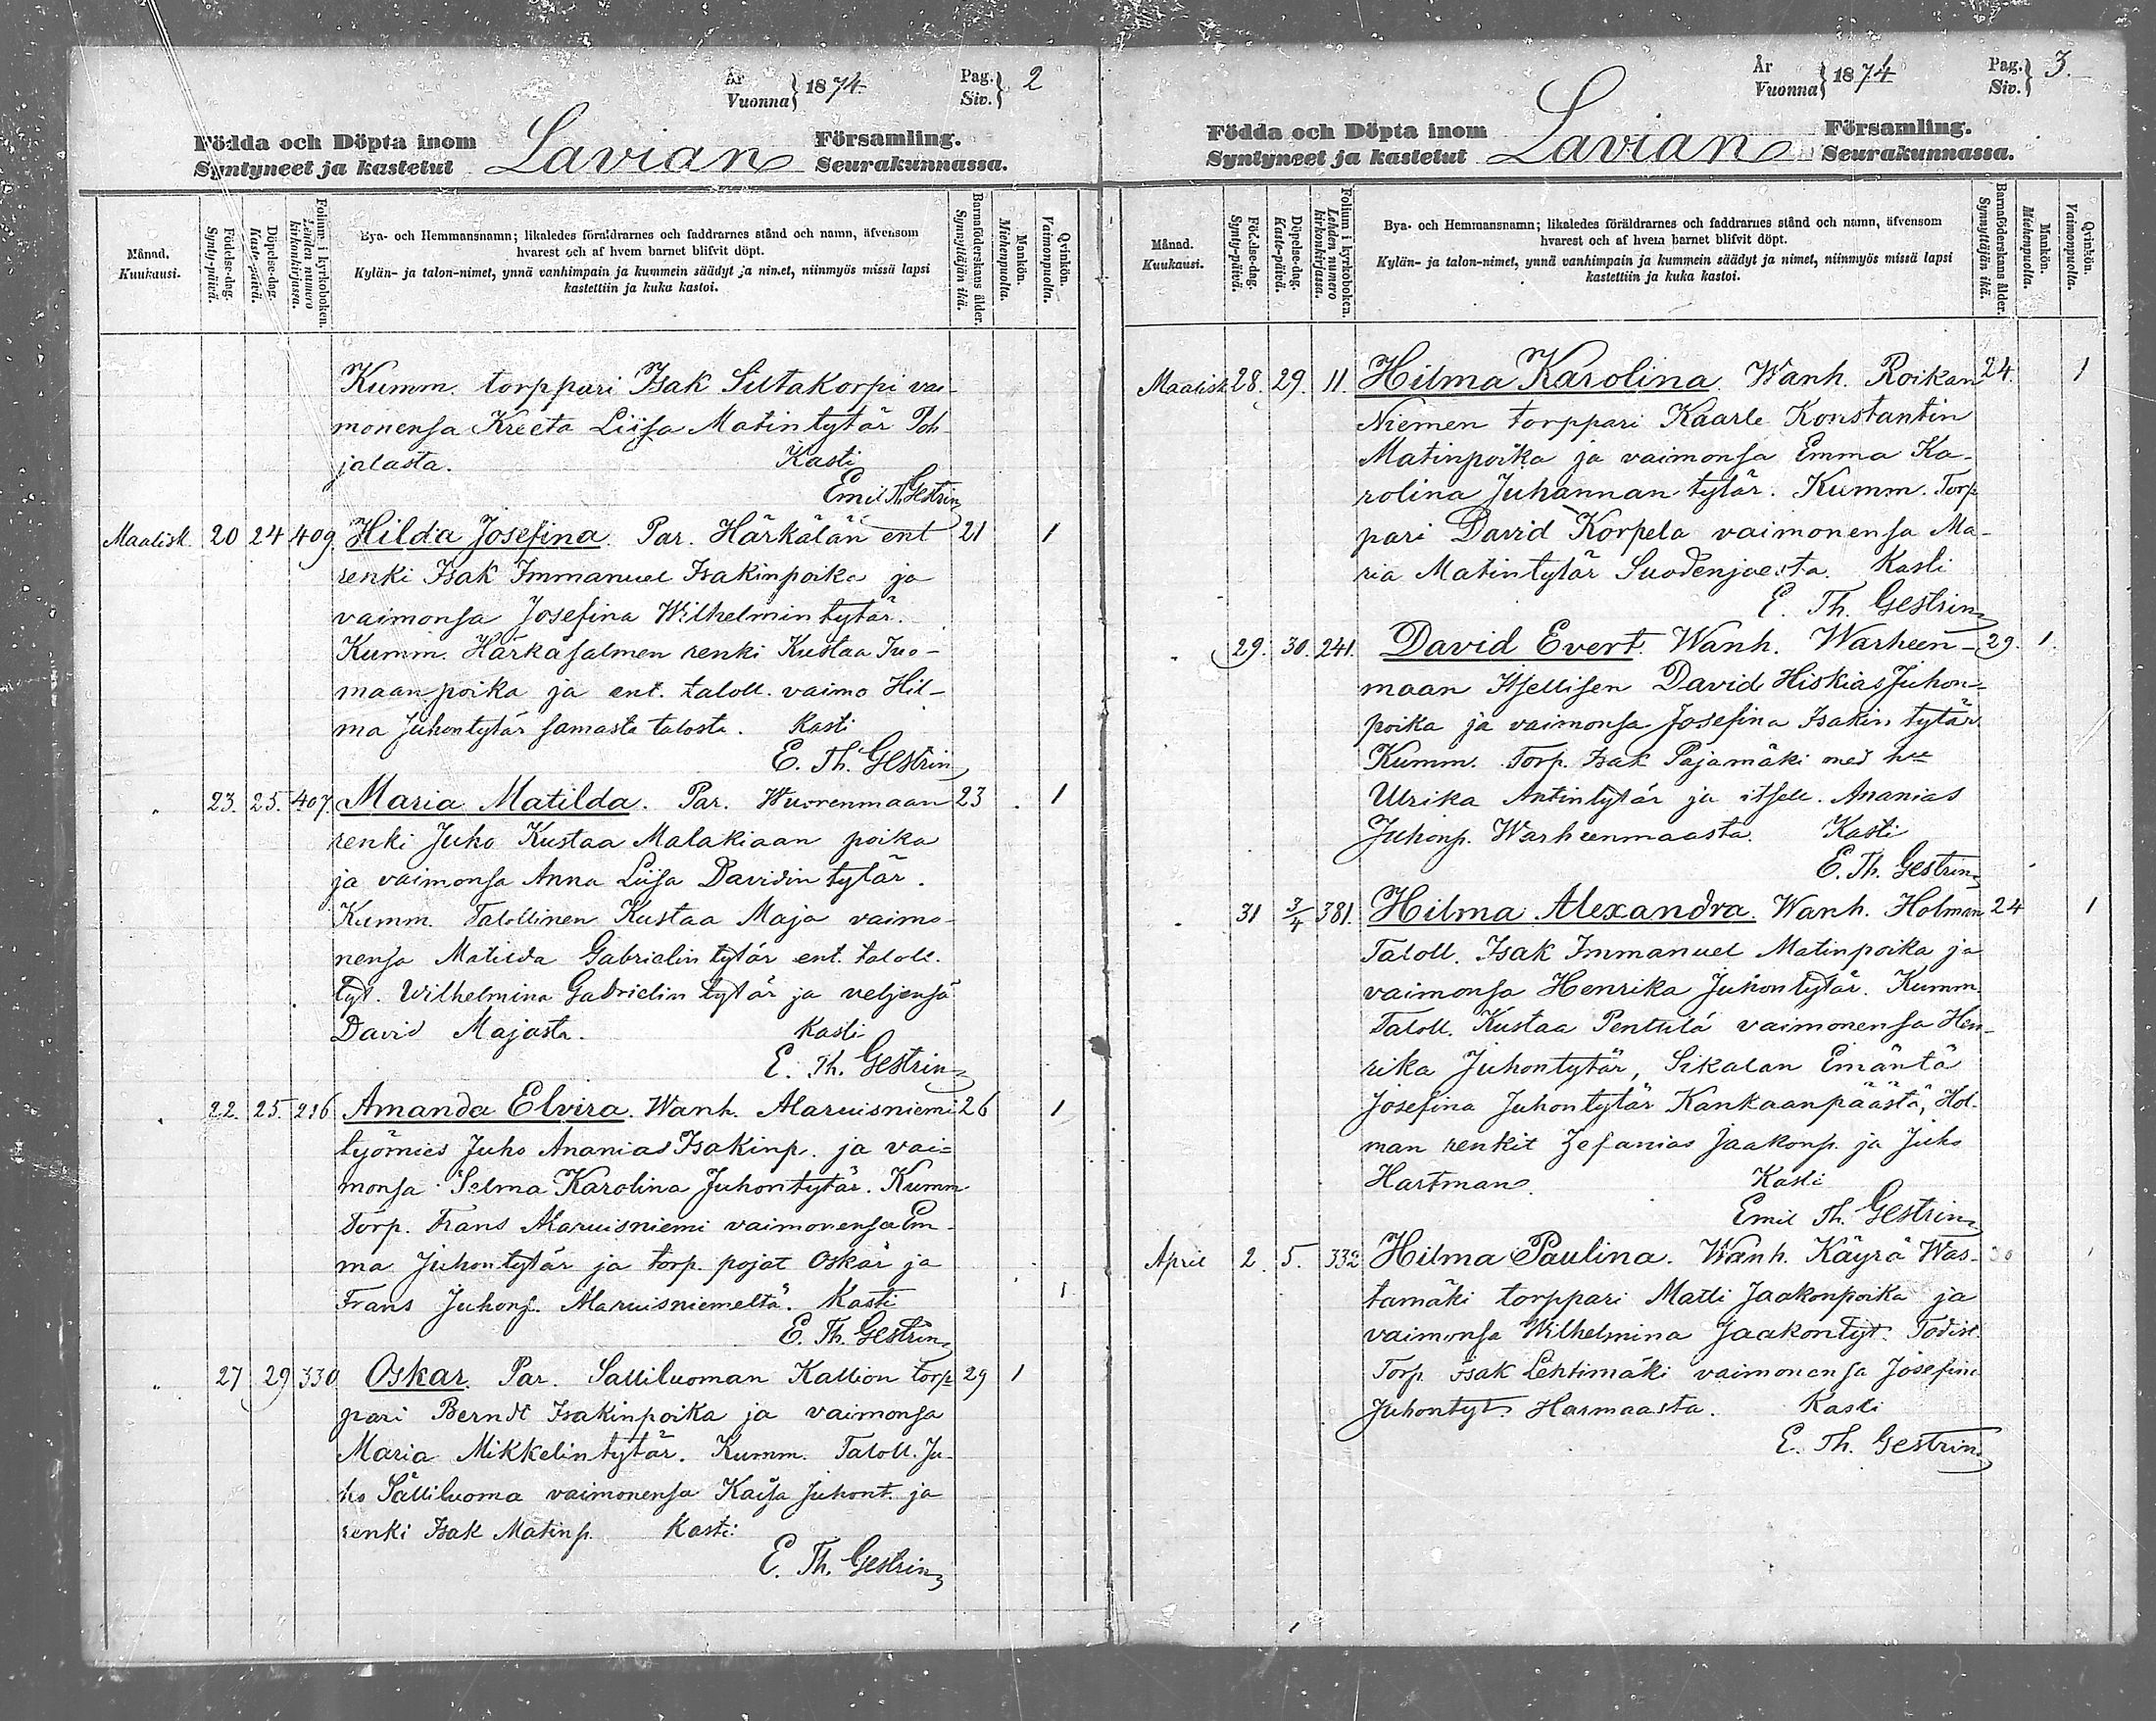 År
Vuonna } 1874.
Pag.
Siv. } 2
Födda och Döpta inom
Syntyneet ja kastetut
Lavian
Församling.
Seurakunnassa.
Månad.
Kuukausi.
Födelse-dag.
Synty-päivä.
Döpelse-dag.
Kaste-päivä.
Folium i kyrkoboken.
Lehden numero kirkonkirjassa.
Bya- och Hemmansnamn; likaledes föräldrarnes och faddrarnes stånd och namn, äfvensom
hvarest och af hvem barnet blifvit döpt.
Kylän- ja talon-nimet, ynnä vanhimpain ja kummein säädyt ja nimet, niinmyös missä lapsi
kastettiin ja kuka kastoi.
Barnaföderskans ålder.
Synnyttäjän ikä.
Mankön.
Miehenpuolta.
Qvinkön.
Vaimonpuolta.
Kumm. torppari Isak Siltakorpi vai-
monensa Kreeta Liisa Matintytär Poh-
jalasta. Kasti
Emil Th. Gestrin
Maalisk. 20 24 409 Hilda Josefina. Par. Härkälän ent 21 1
renki Isak Immanuel Isakinpoika ja
vaimonsa Josefina Wilhelmin tytär.
Kumm. Härkäsalmen renki Kustaa Tuo-
maanpoika ja ent. taloll. vaimo Hil-
ma Juhontytär samasta talosta. Kasti
E. Th. Gestrin
" 23. 25. 407. Maria Matilda. Par. Wuorenmaan 23 1
renki Juho Kustaa Malakiaan poika
ja vaimonsa Anna Liisa Davidin tytär.
Kumm. Talollinen Kustaa Maja vaimo-
nensa Matilda Gabrielin tytär ent. taloll.
tyt. Wilhelmina Gabrielin tytär ja veljensä
David Majasta. Kasti
E. Th. Gestrin
" 22. 25. 216 Amanda Elvira. Wanh. Alaruisniemi 26 1
työmies Juho Ananias Isakinp. ja vai-
monsa Selma Karolina Juhontytär. Kumm
Torp. Frans Alaruisniemi vaimonensa Em-
ma Juhontytär ja torp. pojat Oskar ja
Frans Juhonp. Alaruisniemeltä. Kasti 1
E. Th. Gestrin
" 27 29 330 Oskar. Par. Salliluoman Kallion torp- 29 1
pari Berndt Isakinpoika ja vaimonsa
Maria Mikkelintytär. Kumm. Taloll. Ju-
ho Sälliluoma vaimonensa Kaisa Juhont. ja
renki Isak Matinp. Kasti:
E. Th. Gestrin
År
Vuonna } 1874
Pag.
Siv. } 3.
Födda och Döpta inom
Syntyneet ja kastetut
Lavian
Församling.
Seurakunnassa.
Månad.
Kuukausi.
Födelse-dag.
Synty-päivä.
Döpelse-dag.
Kaste-päivä.
Folium i kyrkoboken.
Lehden numero kirkonkirjassa.
Bya- och Hemmansnamn; likaledes föräldrarnes och faddrarnes stånd och namn, äfvensom
hvarest och af hvem barnet blifvit döpt.
Kylän- ja talon-nimet, ynnä vanhimpain ja kummein säädyt ja nimet, niinmyös missä lapsi
kastettiin ja kuka kastoi.
Barnaföderskans ålder.
Synnyttäjän ikä.
Mankön.
Miehenpuolta.
Qvinkön.
Vaimonpuolta.
Maalisk. 28. 29. 11. Hilma Karolina. Wanh. Roikan 24. 1
Niemen torppari Kaarle Konstantin
Matinpoika ja vaimonsa Emma Ka-
rolina Juhannan tytär. Kumm. Torp
pari David Korpela vaimonensa Ma-
ria Matintytär Suodenjoesta. Kasti
E. Th. Gestrin
" 29. 30. 241. David Evert. Wanh. Warheen- 29. 1.
maan Itsellisen David Hiskias Juhon-
poika ja vaimonsa Josefina Isakin tytär
Kumm. Torp. Isak Pajamäki med hu
Ulrika Antintytär ja itsell. Ananias
Juhonp. Warheenmaasta. Kasti
E. Th. Gestrin
" 31 3/4 381. Hilma Alexandra. Wanh. Holman 24 1
Taloll. Isak Immanuel Matinpoika ja
vaimonsa Henrika Juhontytär. Kumm.
Taloll. Kustaa Penttilä vaimonensa Hen-
rika Juhontytär, Sikalan Emäntä
Josefina Juhontytär Kankaanpäästä, Hol-
man renkit Zefanias Jaakonp. ja Juho
Hartman. Kasti
Emil Th. Gestrin
April 2. 5. 332 Hilma Paulina. Wanh. Käyrä Was- 30 1
tamäki torppari Matti Jaakonpoika ja
vaimonsa Wilhelmina Jaakontyt. Todist.
Torp. Isak Lehtimäki vaimonensa Josefina
Juhontyt. Harmaasta. Kasti
E. Th. Gestrin